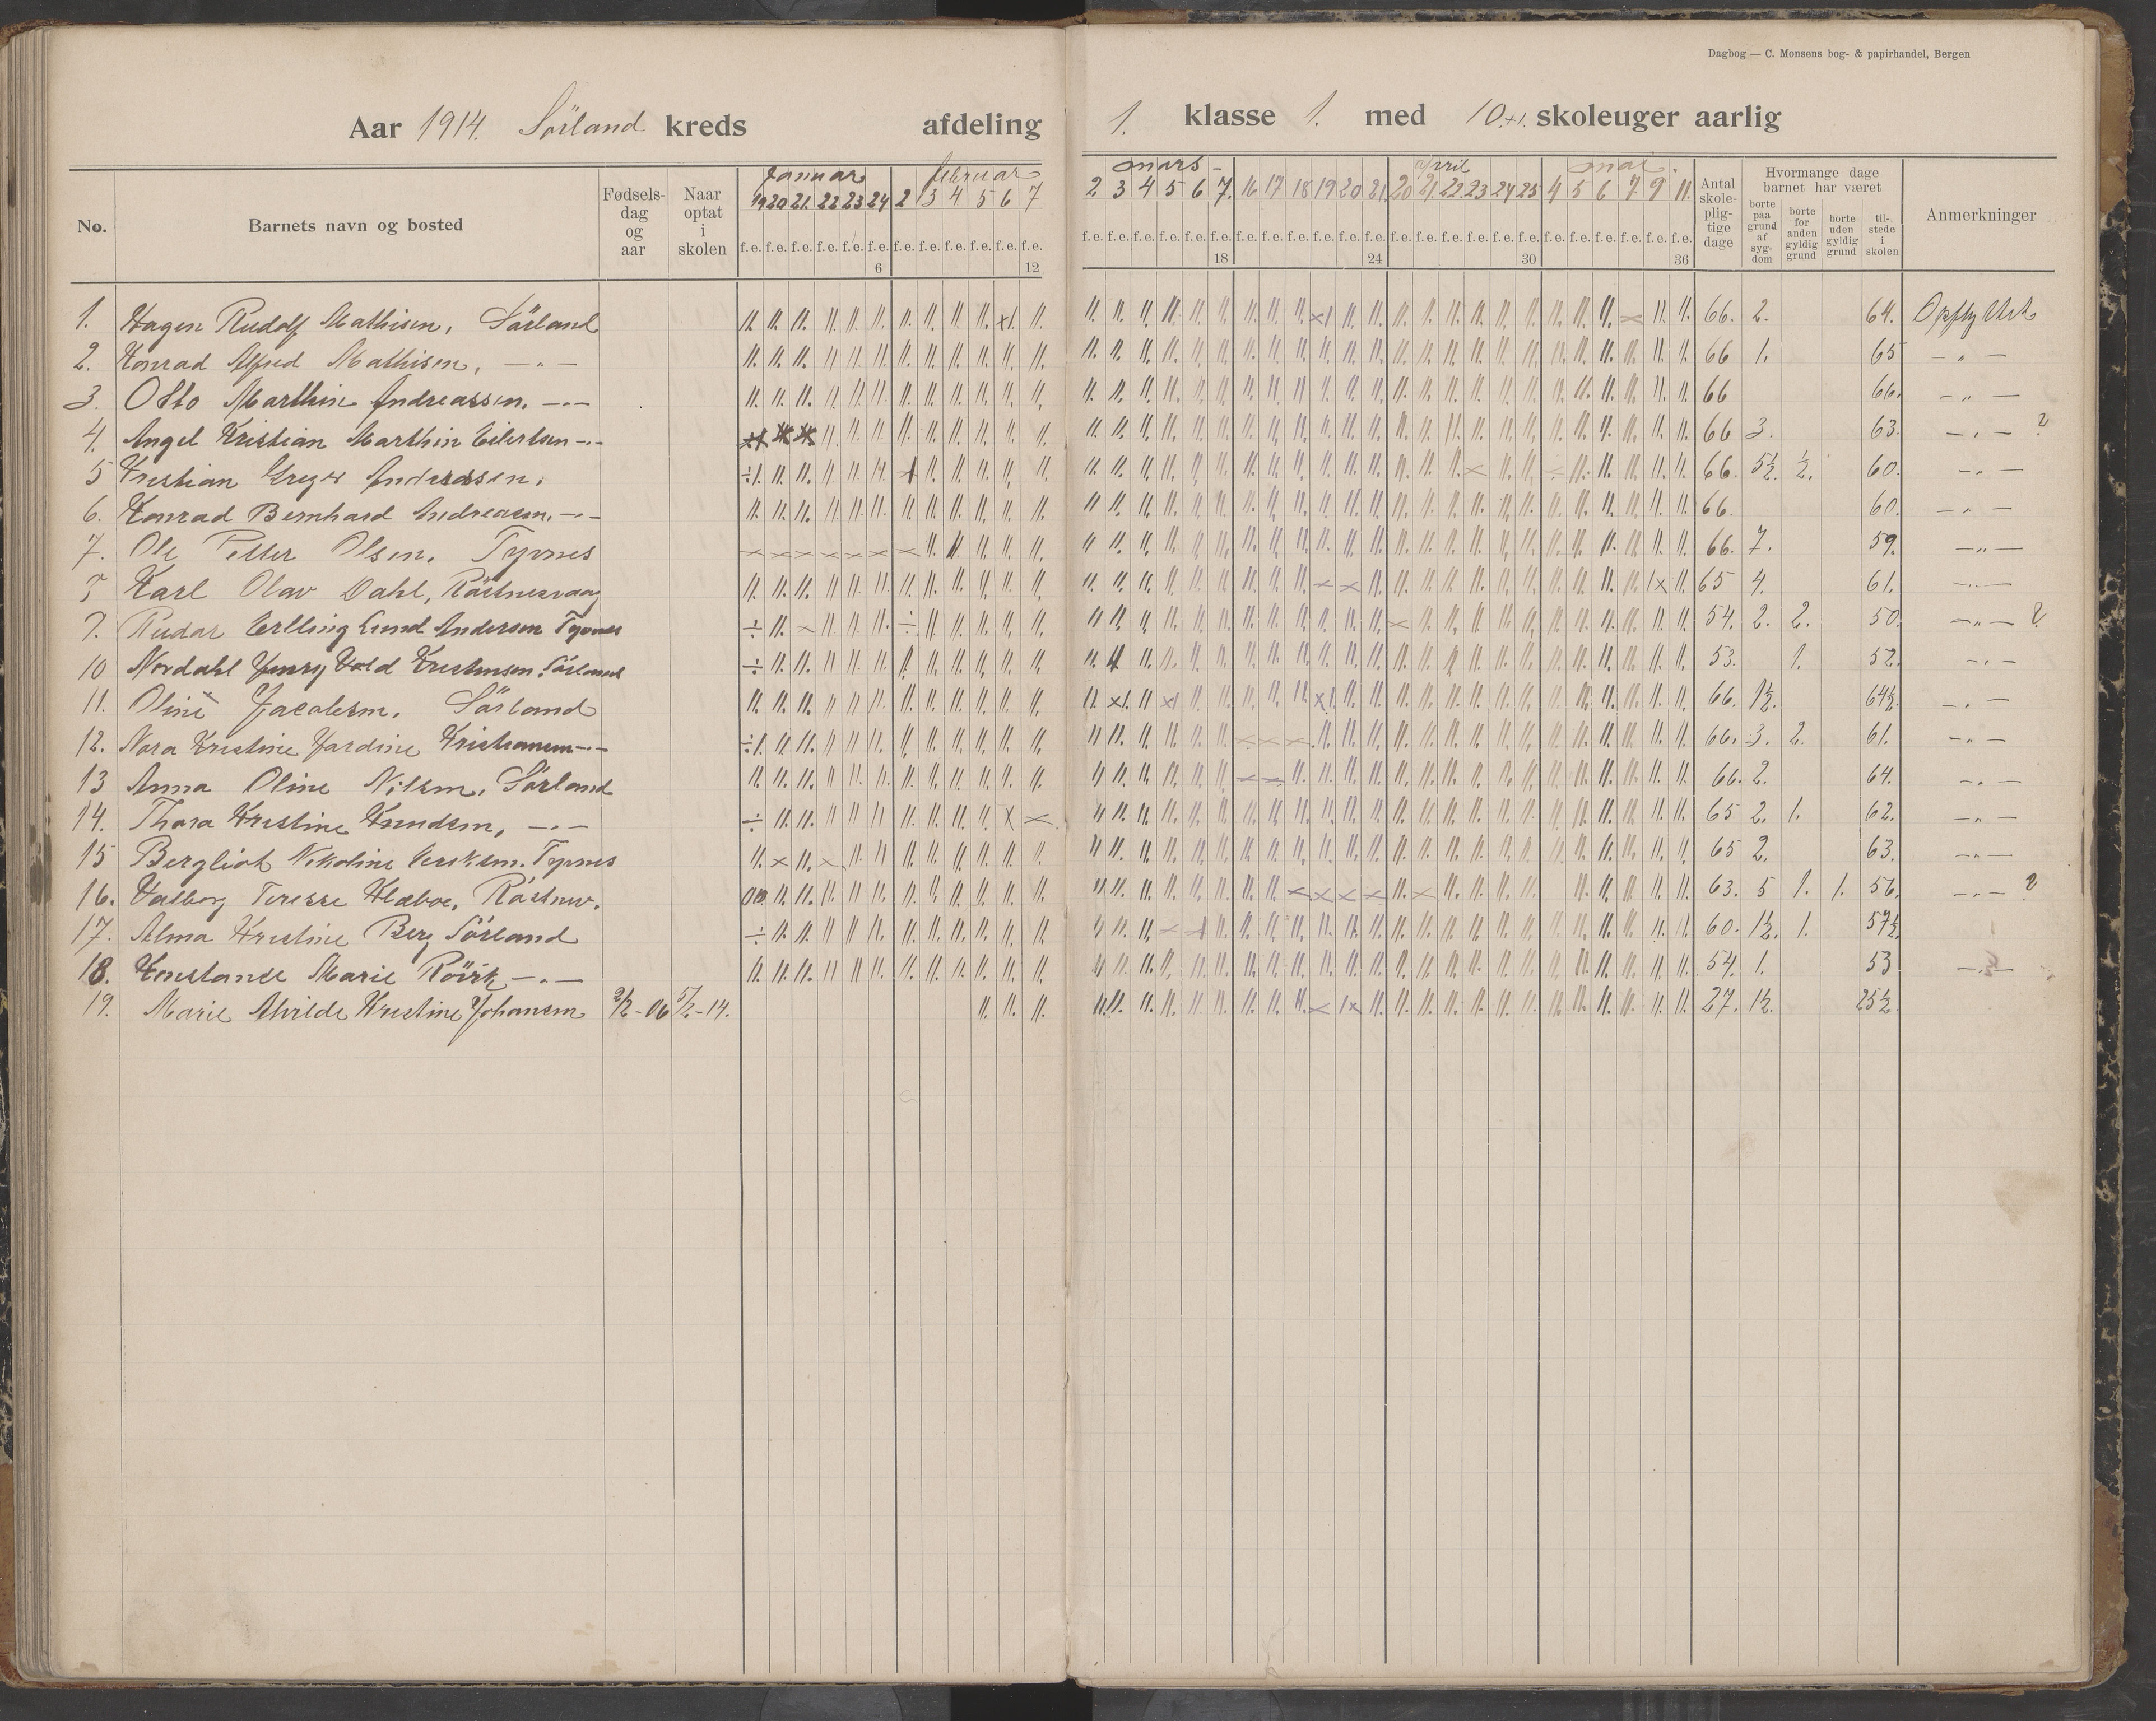 Dagbog — C. Monsens bog- & papirhandel, Bergen
Aar 1914. Sörland kreds afdeling 1. klasse 1. med 10+1. skoleuger aarlig
No. Barnets navn og bosted Fødsels-dag og aar Naar optat i skolen Januar februar mars - April mai. Antal skole-plig-tige dage Hvormange dage barnet har været Anmerkninger
19 20 21. 22 23 24 2 3 4 5 6 7 2 3 4 5 6 7. 16 17 18 19 20 21 20 21. 22. 23 24 25 4 5 6 7 9 11.
borte paa grund af syg-dom borte for anden gyldig grund borte uden gyldig grund til-stede i skolen
f.e. f.e. f.e. f.e. f.e. f.e. f.e. f.e. f.e. f.e. f.e. f.e. f.e. f.e. f.e. f.e. f.e. f.e. f.e. f.e. f.e. f.e. f.e. f.e. f.e. f.e. f.e. f.e. f.e. f.e. f.e. f.e. f.e. f.e. f.e. f.e.
6 12 18 24 30 36
1. Hagen Rudolf Mathisen, Sörland 66. 2. 64. Opflyttet
2. Konrad Alfred Mathisen, - " - 66 1. 65 - " -
3. Otto Marthin Andreassen. - " - 66 66. - " -
4. Angel Kristian Marthin Eilertsen - " - 66 3. 63. - " - ?
5 Kristian Greger Andreassen. 66. 5½. ½. 60. - " -
6. Konrad Bernhard Andreasen. - " - 66. 60. - " -
7. Ole Petter Olsen. Tyvnes 66. 7. 59. - " -
Karl Olav Dahl, Röstnesvaag 65 4. 61. - " -
9. Rudar Erlling Lund Andersen Tyvnes 54. 2. 2. 50. - " - ?
10 Nordahl Henry Vold Kristensen. Sörland 53. 1. 52. - " -
11. Oline Jacobsen, Sörland 66. 1½. 64½. - " -
12. Nora Kristine Hardine Kristiansen - " - 66. 3. 2. 61. - " -
13 Anna Oline Nilsen. Sörland 66. 2. 64. - " -
14. Thora Kristine Knudsen, - " - 65 2. 1. 62. - " -
15 Bergliot Nikoline Tyvnes 65 2. 63. - " -
16. Valborg Teresse Klæboe, Röstnesv. 63. 5 1. 1. 56. - " - ?
17. Alma Kristine Berg Sörland 60. 1½. 1. 57½.
18. Konstanse Marie Röirk - " - 54. 1. 53 - " -
19. Marie Alvilde Kristine Johansen 2/2-06 5/2-14. 27. 1½. 25½.